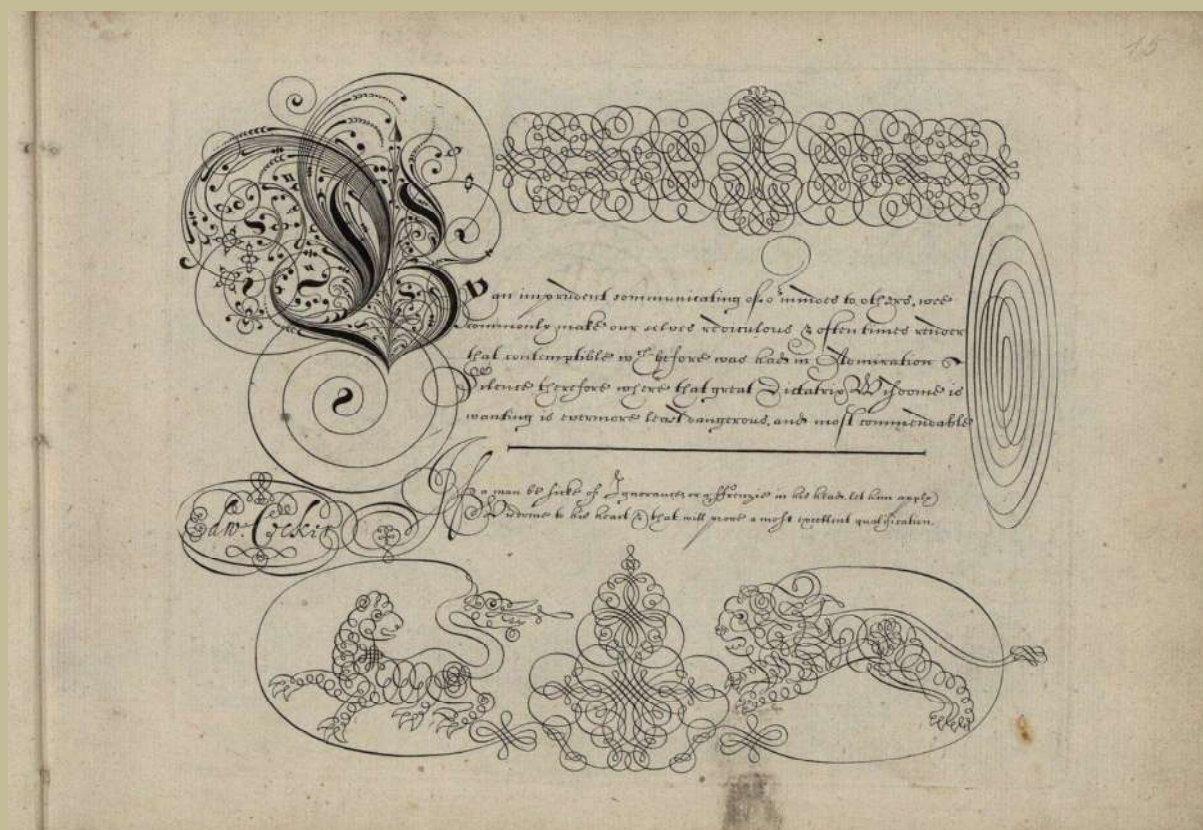 15
By an imprudent communicating of or mindes to others, wee
commonly make our selves rediculous & often times render
that contemptible wch before was had in Admiration
Silence therefore where that great Dictatrix Wisdome is
wanting is evermore least dangerous, and most commendable
If a man be sicke of Ignorance, or a Frenzie in his head, let him apply
Wisdome to his heart & that will prove a most excellent qualification.
Edw. Cocker